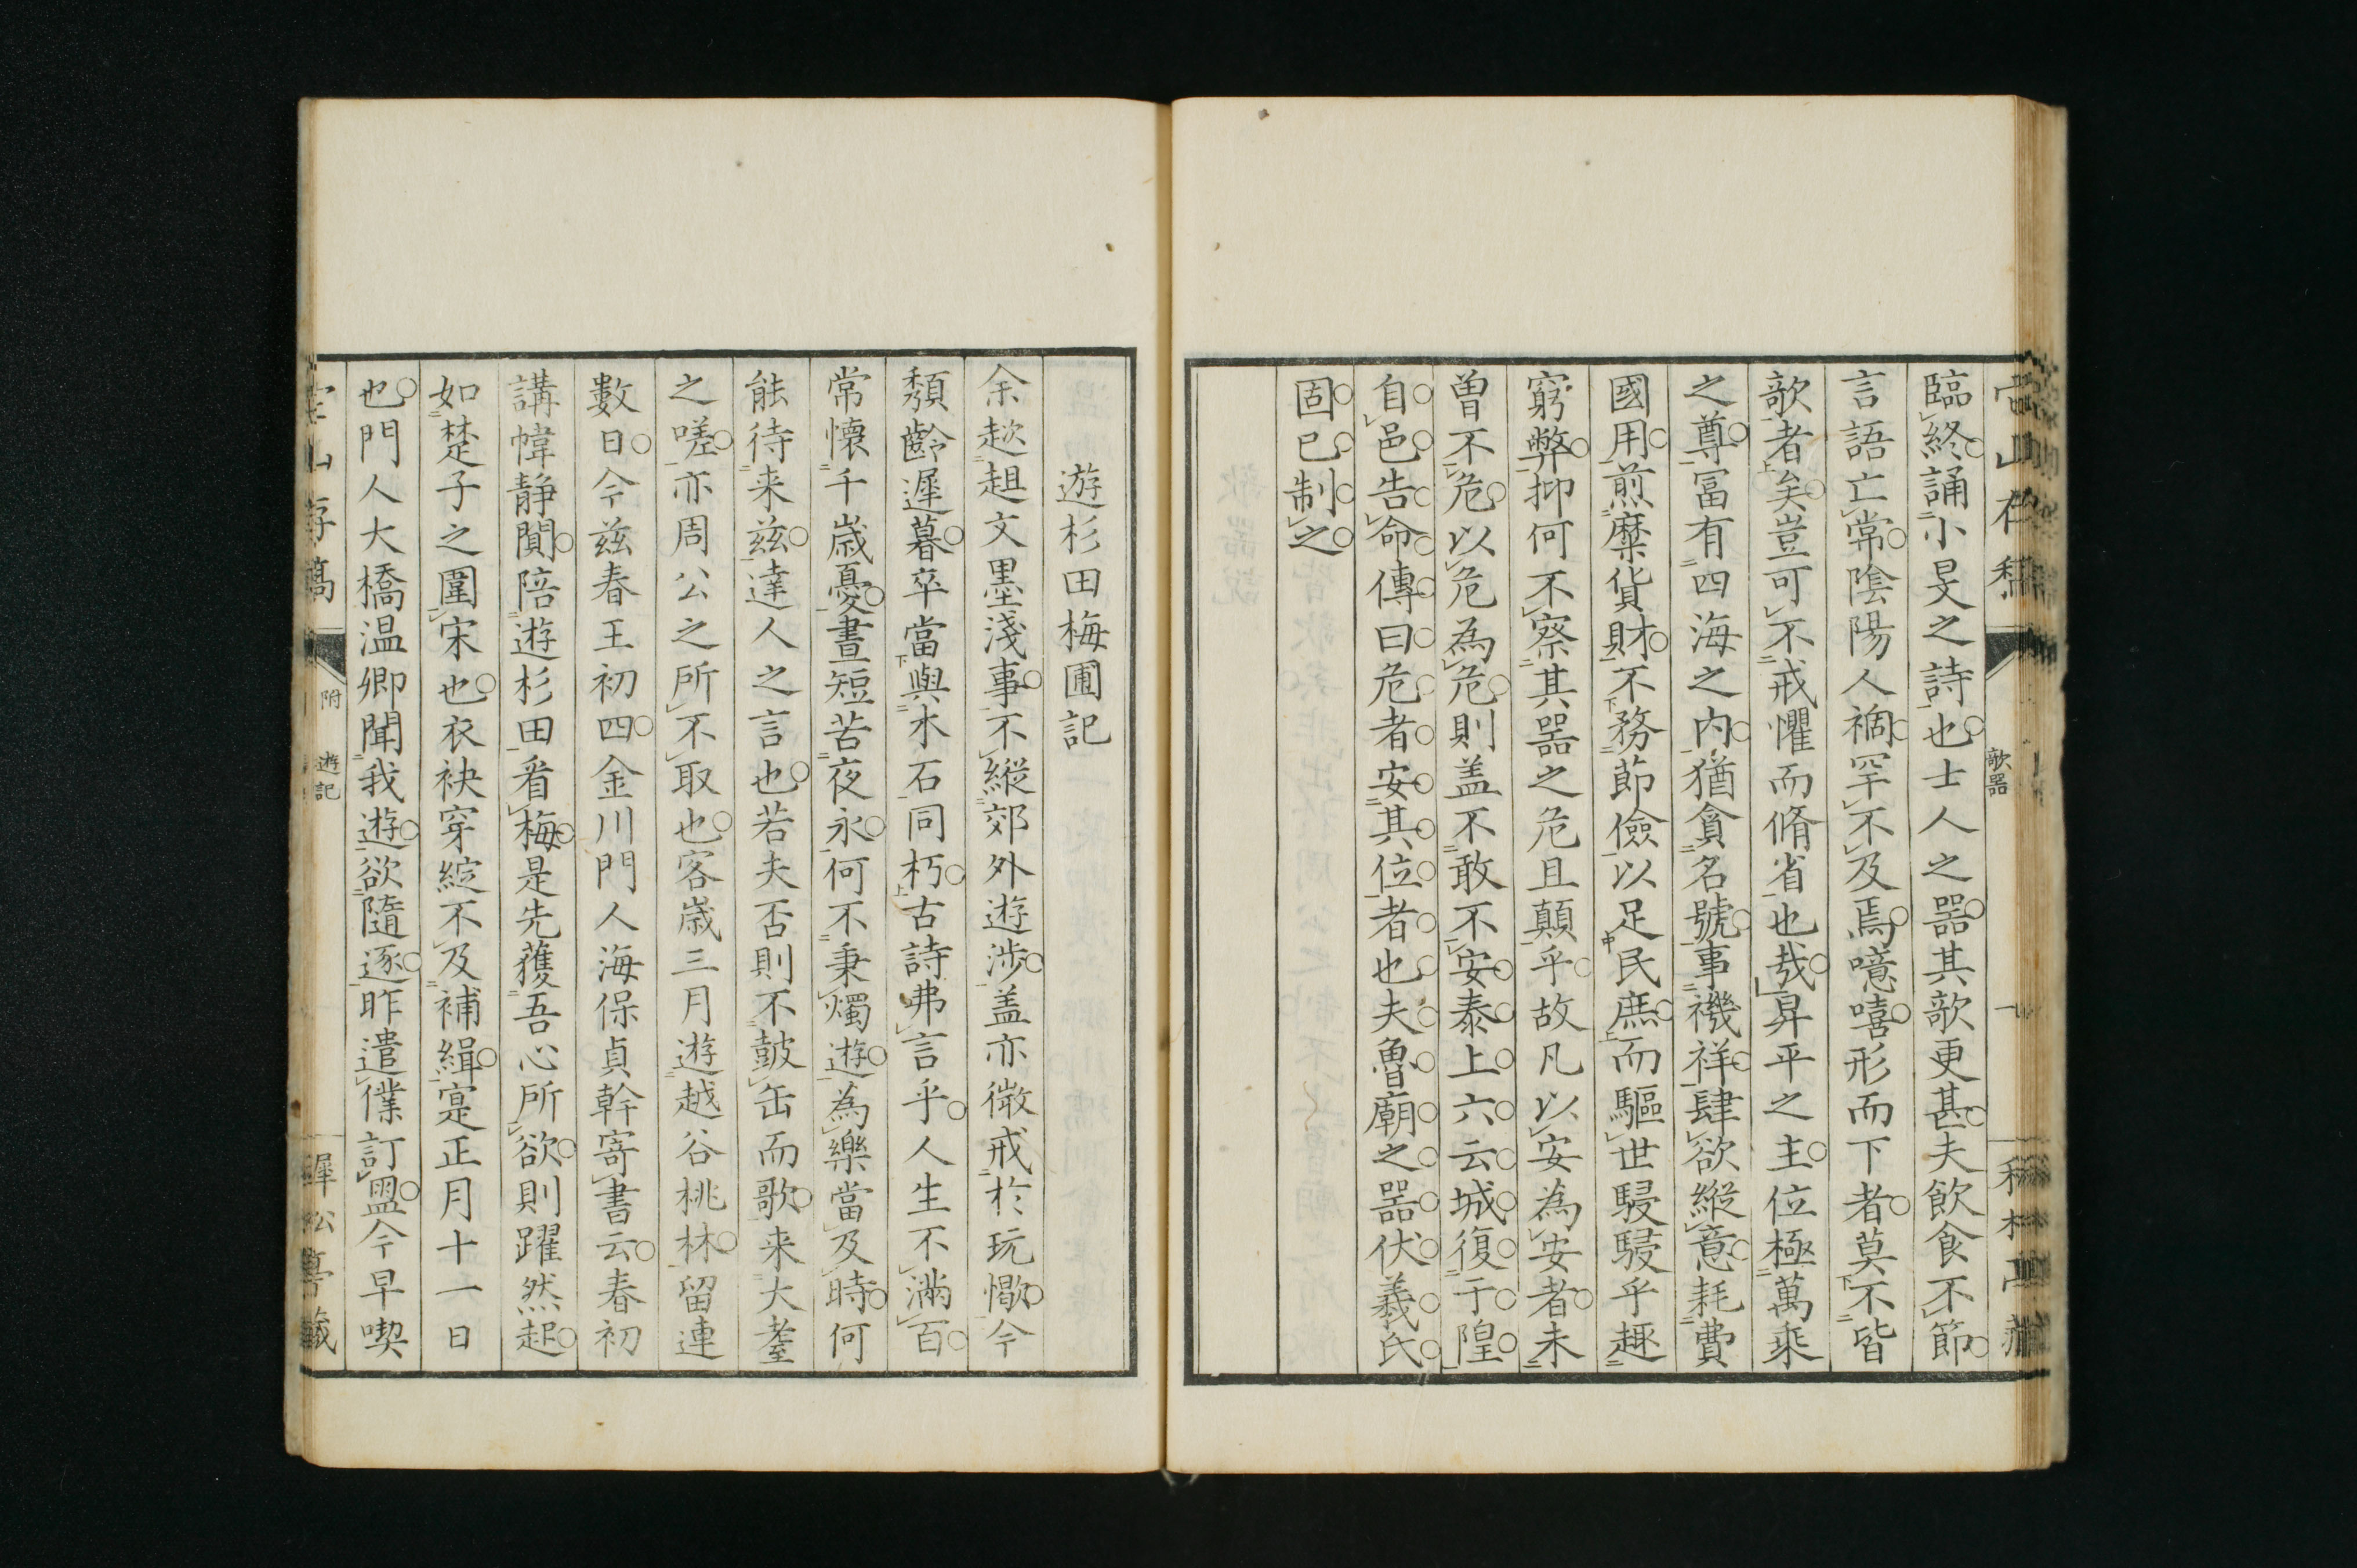 臨終誦小旻之詩也士人之器其欹更甚夫飲食不節
言語亡常陰陽人禍罕不及焉噫嘻形而下者莫不皆
欹者矣豈可不戒懼而脩省也哉昇平之主位極萬乘
之尊富有四海之内猶貪名號事禨祥肆欲縱意耗費
國用煎糜貨財不務節儉以足民庶而驅世駸駸乎趣
窮弊抑何不察其器之危且顛乎故凡以安為安者未
曽不危以危為危則盖不敢不安泰上六云城復于隍
自邑告命傳曰危者安其位者也夫魯廟之器伏羲氏
固已制之
欹器
遊杉田梅圃記
余趑趄文墨淺事不縱郊外遊渉盖亦微戒於玩愒今
頽齡遲暮卒當與木石同朽古詩弗言乎人生不滿百
常懷千歳憂晝短苦夜永何不秉燭遊為樂當及時何
能待来兹達人之言也若夫否則不鼓缶而歌来大耋
之嗟亦周公之所不取也客歳三月遊越谷桃林留連
數日今兹春王初四金川門人海保貞幹寄書云春初
講幃静閴陪遊杉田看梅是先獲吾心所欲則躍然起
如楚子之圍宋也衣袂穿綻不及補緝寔正月十一日
也門人大橋温卿聞我遊欲隨逐昨遣僕訂盟今早喫
附 遊記